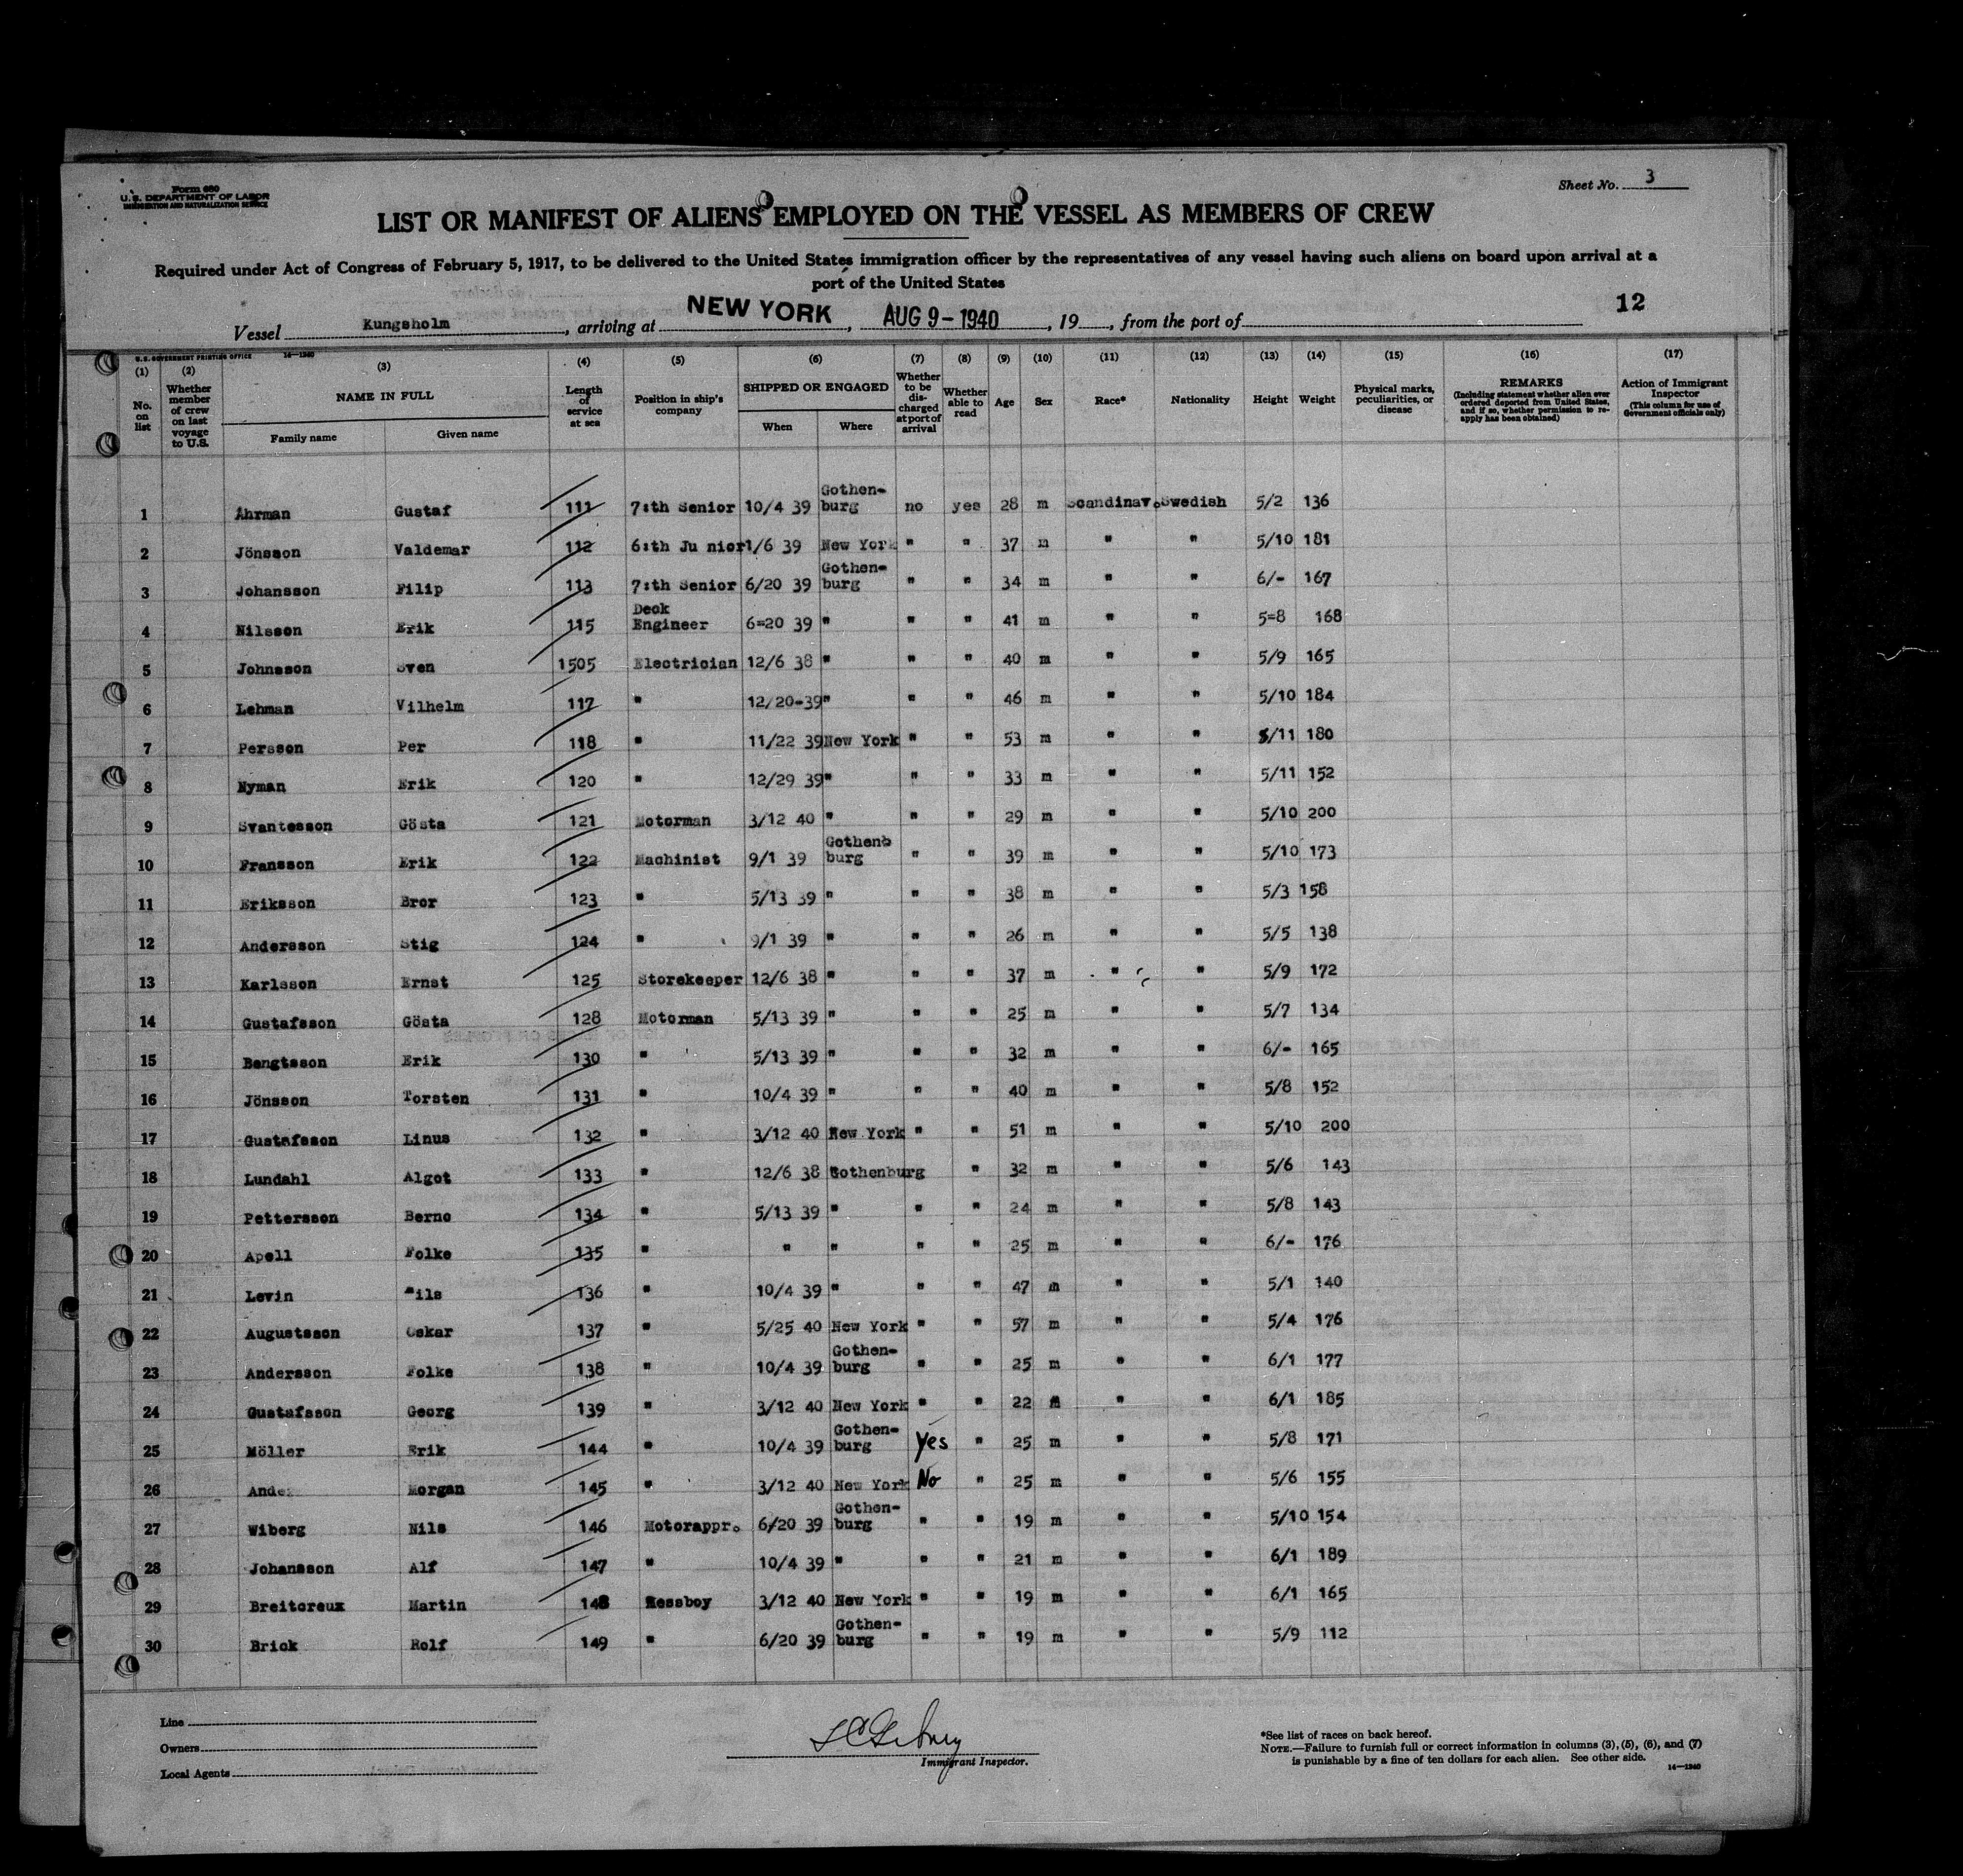 Form 680
U. S. DEPARTMENT OF LABOR
IMMIGRATION AND NATURALIZATION SERVICE
Sheet No. 3
LIST OR MANIFEST OF ALIENS EMPLOYED ON THE VESSEL AS MEMBERS OF CREW
Required under Act of Congress of February 5, 1917, to be delivered to the United States immigration officer by the representatives of any vessel having such aliens on board upon arrival at a
port of the United States
12
Vessel Kungsholm, arriving at NEW YORK, AUG 9 - 1940, 19, from the port of
U. S. GOVERNMENT PRINTING OFFICE 14—1240
(1) (2) (3) (4) (5) (6) (7) (8) (9) (10) (11) (12) (13) (14) (15) (16) (17)
No. on list
Whether member of crew on last voyage to U.S.
NAME IN FULL
Family name Given name
Length of service at sea
Position in ship's company
SHIPPED OR ENGAGED
When Where
Whether to be discharged at port of arrival
Whether able to read
Age
Sex
Race*
Nationality
Height
Weight
Physical marks, peculiarities, or disease
REMARKS
(Including statement whether alien ever ordered deported from United States, and if so, whether permission to reapply has been obtained)
Action of Immigrant Inspector
(This column for use of Government officials only)
1 Åhrman Gustaf 111 7:th Senior 10/4 39 Gothen-burg no yes 28 m Scandinav. Swedish 5/2 136
2 Jönsson Valdemar 112 6:th Ju nior 1/6 39 New York " " 37 m " " 5/10 181
3 Johansson Filip 113 7:th Senior 6/20 39 Gothen-burg " " 34 m " " 6/- 167
4 Nilsson Erik 115 Deck Engineer 6=20 39 " " " 41 m " " 5=8 168
5 Johnsson Sven 1505 Electrician 12/6 38 " " " 40 m " " 5/9 165
6 Lehman Vilhelm 117 " 12/20-39 " " " 46 m " " 5/10 184
7 Persson Per 118 " 11/22 39 New York " " 53 m " " 5/11 180
8 Nyman Erik 120 " 12/29 39 " " " 33 m " " 5/11 152
9 Svantesson Gösta 121 Motorman 3/12 40 " " " 29 m " " 5/10 200
10 Fransson Erik 122 Machinist 9/1 39 Gothenb burg " " 39 m " " 5/10 173
11 Eriksson Bror 123 " 5/13 39 " " " 38 m " " 5/3 158
12 Andersson Stig 124 " 9/1 39 " " " 26 m " " 5/5 138
13 Karlsson Ernst 125 Storekeeper 12/6 38 " " " 37 m " " 5/9 172
14 Gustafsson Gösta 128 Motorman 5/13 39 " " " 25 m " " 5/7 134
15 Bengtsson Erik 130 " 5/13 39 " " " 32 m " " 6/- 165
16 Jönsson Torsten 131 " 10/4 39 " " " 40 m " " 5/8 152
17 Gustafsson Linus 132 " 3/12 40 New York " " 51 m " " 5/10 200
18 Lundahl Algot 133 " 12/6 38 Gothenburg " 32 m " " 5/6 143
19 Pettersson Berno 134 " 5/13 39 " " " 24 m " " 5/8 143
20 Apell Folke 135 " " " " " 25 m " " 6/- 176
21 Levin "ils 136 " 10/4 39 " " " 47 m " " 5/1 140
22 Augustsson Oskar 137 " 5/25 40 New York " " 57 m " " 5/4 176
23 Andersson Folke 138 " 10/4 39 Gothen-burg " " 25 m " " 6/1 177
24 Gustafsson Georg 139 " 3/12 40 New York " " 22 m " " 6/1 185
25 Möller Erik 144 " 10/4 39 Gothen-burg Yes " 25 m " " 5/8 171
26 Morgan 145 " 3/12 40 New York No " 25 m " " 5/6 155
27 Wiberg Nils 146 Motorappr. 6/20 39 Gothen-burg " " 19 m " " 5/10 154
28 Johansson Alf 147 " 10/4 39 " " " 21 m " " 6/1 189
29 Breitoreux Martin 148 Messboy 3/12 40 New York " " 19 m " " 6/1 165
30 Brick Rolf 149 " 6/20 39 Gothen-burg " " 19 m " " 5/9 112
Line
Owners
Local Agents
Immigrant Inspector.
*See list of races on back hereof.
NOTE.—Failure to furnish full or correct information in columns (3), (5), (6), and (7)
is punishable by a fine of ten dollars for each alien. See other side.
14—1240